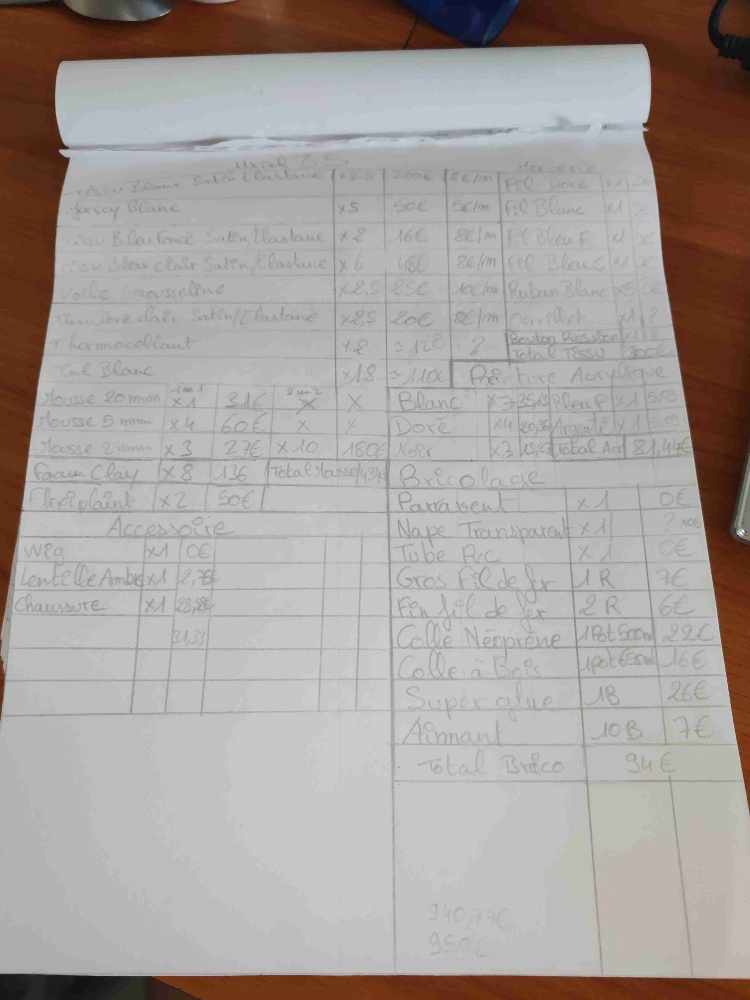 Tissu Blanc Satin Elastane x25 200€ 8€/m
Jersey Blanc x5 50€ 5€/m
Tissu Bleu foncé Satin Elastane x2 16€ 8€/m
Tissu Bleu clair Satin/Elastane x6 48€ 8€/m
Voile/mousseline x2,5 25€ 10€/m
Tissu Doré clair Satin/Elastane x2,5 20€ 8€/m
Thermocollant x2 ≈12€ ?
Tul Blanc x18 ≈110€
Mercerie
Fil Doré x1
Fil Blanc x1
Fil Bleu F x1
Fil Bleu C x1
Ruban Blanc x5
x1 ?
Bouton Pression x1 ?
Total Tissu 300€
1m1 2m2
Mousse 20mm x1 31€ X X
Mousse 5 mm x4 60€ x x
Mousse 2 mm x3 27€ x10 180€
Foam Clay x8 136
Flexiplaint x2 50€
Peinture Acrylique
Blanc x7 Bleu F x1
Doré x4 Argenté x1
Noir x3 Total Acr 81,44€
Accessoire
Wig x1 0€
Lentille Ambre x1 2,75€
Chaussure x1
31,33
Bricolage
Parravent x1 0€
Nape Transparent x1 ? 10€
Tube Pvc x1 0€
Gros Fil de fer 1R 7€
Fin fil de fer 2R 6€
Colle Néoprène 1Pot 500ml 22€
Colle à Bois 1pot 650ml 16€
Super glue 1B 26€
Aimant 10B 7€
Total Brico 94€
940,77€
950€